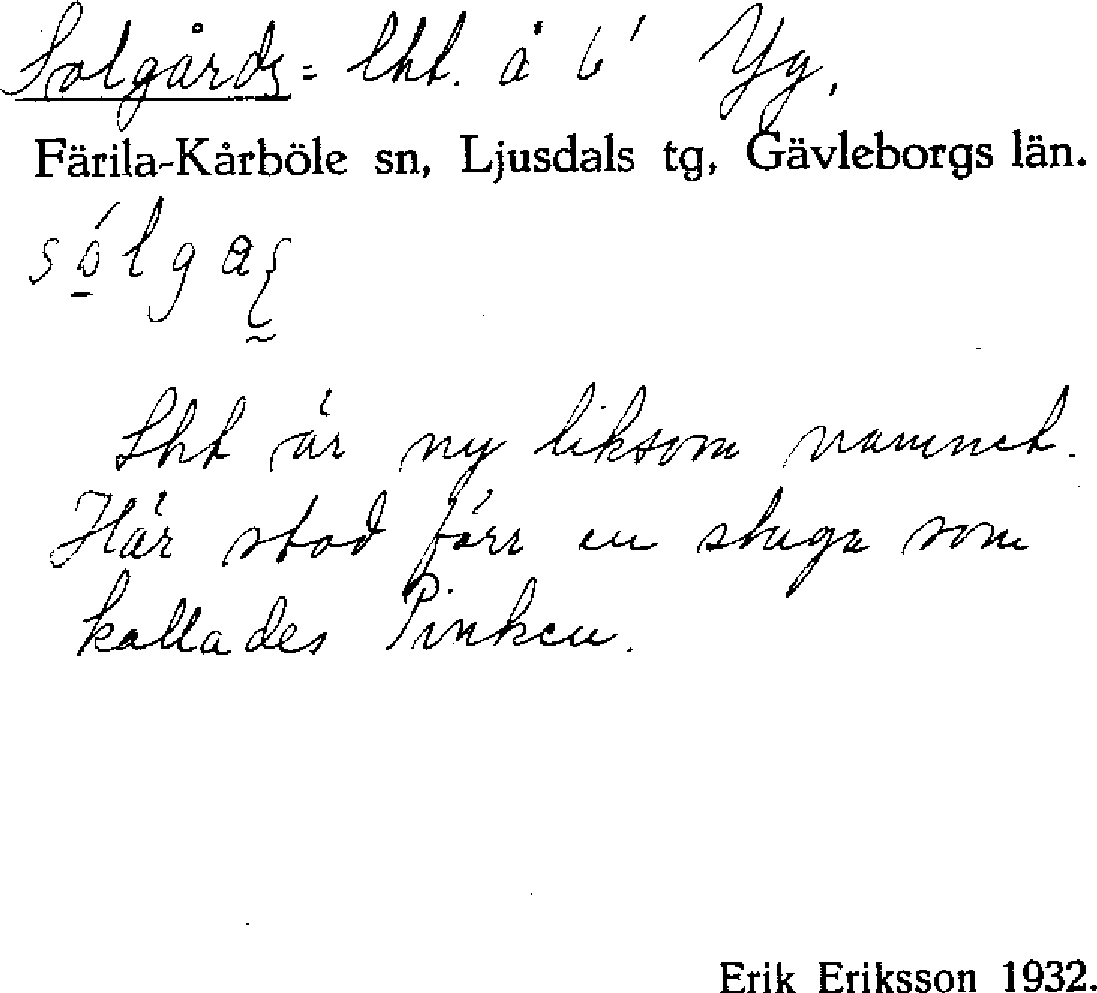 Solgårds = lht. å 6' Yg,
Färila-Kårböle sn, Ljusdals tg, Gävleborgs län.
sólgaʂ
Lht är ny liksom namnet.
Här stod förr en stuga som
kallades Pinken.
Erik Eriksson 1932.